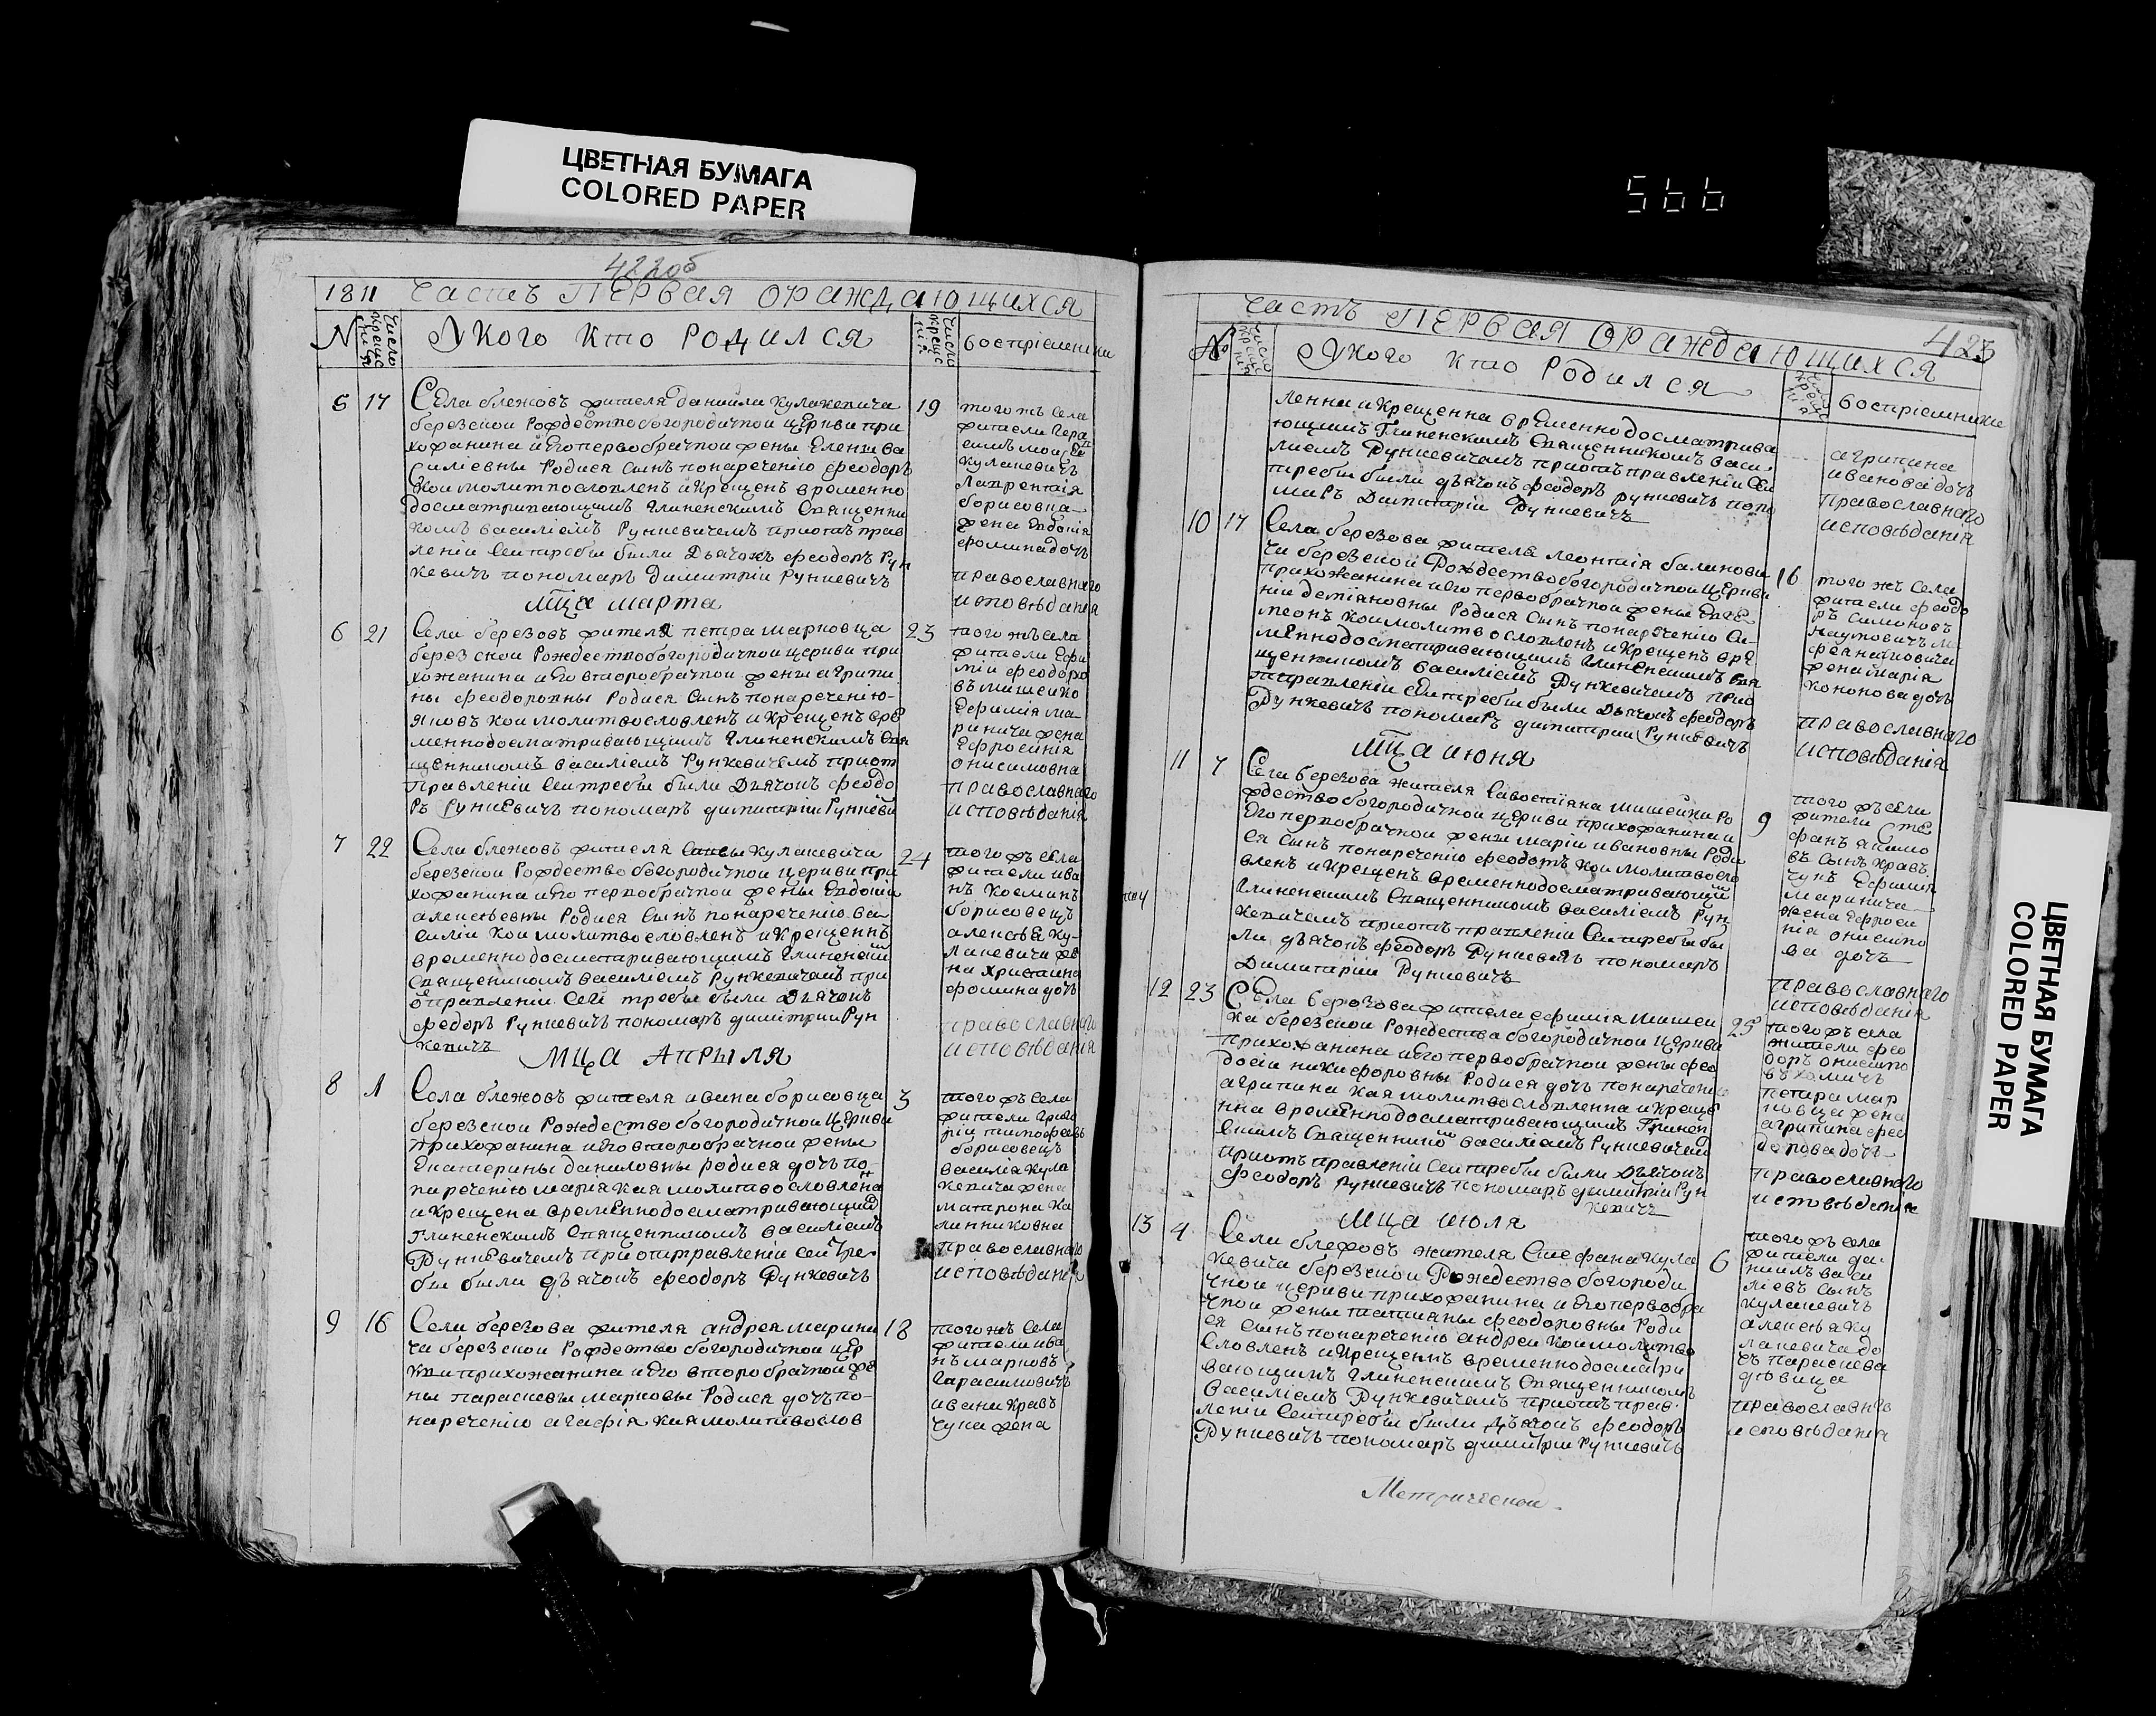 ЦВЕТНАЯ БУМАГА
COLORED PAPER
566
422об
1811 Часть ПЕРвая оРаждающихся
N
Число
У Кого Кто Родился
Число
Воспріемники
5 17
Села блежовъ жителя даниила Кулакевича
березской Рождествобогородичной церкви при
хожанина и Егопервобрачной жены Елены ва
силіевны Родися Сынъ понареченію феодоръ
кои молитвословленъ и Крещенъ временно
досматривающимъ Глиненскимъ Священни
комъ василіемъ Рункевичемъ приотъправ
леніи Сеитребы были Дьячокъ феодоръ Рун
кевичъ пономаръ Димитріи Рункевичъ
19
того жъ Села
жители
Кулакевичъ
Лаврентія
борисовца
жена Евдокія
фоминадочь
православнаго
исповѣданія
Мца марта
6 21
Села березовъ жителя петра марковца
березской Рождествобогородичной церкви при
хожанина иЕго второбрачной жены агрипи
ны феодоровны Родися Сынъ понареченію
яковъ кои молитвословленъ и Крещенъ вре
меннодосматривающимъ Глиненскимъ Свя
щенникомъ василіемъ Рункевичемъ приот
правленіи Сеитребы были Дьячокъ феодо
ръ Рункевичъ пономаръ димитріи Рункеви
23
того жъ села
жители Ефи
міи феодоро
въ мишейко
Ефимія ма
ринича жена
Ефросинія
онисимовна
православнаго
исповѣданія
7 22
Села блежовъ жителя Саввы Кулакевича
березской Рождество богородичной церкви при
хожанина иЕго первобрачной жены Евдокіи
алексѣевны Родися Сынъ понареченію ва
силіи кои молитвословленъ иКрещенъ
временнодосматривающимъ Глиненскимъ
Священникомъ василіемъ Рункевичемъ при
отправленіи Сей требы были Дьячокъ
федоръ Рункевичъ пономаръ димитріи Рун
кевичъ
24
того жъ села
жители ива
нъ Косминъ
борисовецъ
алексѣя Ку
лакевича же
на Христина
фомина дочь
православнаго
исповѣданія
Мца Априля
8 1
Села блежовъ жителя ивана борисовца
березской Рождество богородичной Церкви
Прихожанина иЕго второбрачной жены
Екатерины даниловны родися дочь по
нареченію марія кая молитвословлена
и Крещена временнодосматривающимъ
Глиненскимъ Священникомъ василіемъ
Рункевичемъ приотправленіи сей тре
бы были дьячокъ феодоръ Рункевичъ
3
того жъ села
жители Григо
ріи тимофѣевъ
борисовецъ
василія Кула
кевича жена
матрона Ка
линниковна
православнаго
исповѣданія
9 16
Села березова жителя андрея марини
ча березской Рождество богородичной цер
кви прихожанина иЕго второбрачной же
ны параскевы марковы Родися дочь по
нареченію агафія кая молитвослов
18
того жъ Села
жители ива
нъ марковъ
Гарасимовичъ
ивана Кравъ
чука жена
423
Часть ПЕРвая оРаждающихся
№
Число
У Кого Кто Родился
Воспріемники
ленна и Крещенна временнодосматрива
ющимъ Глиненскимъ Священникомъ васи
ліемъ Рункевичемъ приотъправленіи Сеи
требы были дьячокъ феодоръ рункевичъ поно
маръ Димитріи Рункевичъ
агрипина
иванова дочь
православнаго
исповѣданія
10 17
Села березова жителя леонтія балинови
ча березской Рождествобогородичной церкви
прихожанина иЕго первобрачной жены Евге
ніи деміяновны Родися Сынъ понареченію Си
меонъ кои молитвословленъ и Крещенъ вре
меннодосматривающимъ Глиненскимъ Свя
щенникомъ василіемъ Рункевичемъ прио
тправленіи Сеитребы были Дьячокъ феодоръ
Рункевичъ пономаръ димитріи Рункевичъ
16
того жъ Села
жители феодо
ръ Симоновъ
Наумовичъ
жена марія
Кононова дочь
православнаго
исповѣданія
Мца июня
11 7
Села березова жителя Савостіяна мишейки Ро
ждествобогородичной церкви прихожанина и
Его первобрачной жены маріи ивановны Роди
ся Сынъ понареченію феодотъ кои молитвосло
вленъ и Крещенъ временнодосматривающимъ
Глиненскимъ Священникомъ василіемъ Рун
кевичемъ приотъправленіи Сеитребы бы
ли дьячокъ феодоръ Рункевичъ пономаръ
Димитріи Рункевичъ
9
того жъ сели
жители Сте
фанъ якимо
въ Сынъ Крав
чукъ Ефимія
маринича
жена Ефроси
нія онисимо
ва дочь
православнаго
исповѣданія
12 23
Села березова жителя ефимія мишей
ка березской Рождества богородичной Церкви
прихожанина иЕго первобрачной жены фео
досіи никифоровны Родися дочь понареченію
агрипина кая молитвословленна и Креще
нна временнодосматривающимъ Глинен
скимъ Священникомъ василіемъ Рункевичемъ
приотъправленіи Сеитребы были Дьячокъ
феодоръ Рункевичъ пономаръ димитріи Рун
кевичъ
25
того жъ села
жители фео
доръ онисимо
въ хомичъ
петра мар
ковца жена
агрипина фео
дорова дочь
православнаго
исповѣданія
Мца июля
13 4
Села блежовъ жителя Стефана Кула
кевича березской Рождество богороди
чной церкви прихожанина и Его первобра
чной жены татияны феодоровны Роди
ся Сынъ понареченію андреи кои молитво
Словленъ и Крещенъ временнодосматри
вающимъ Глиненскимъ Священникомъ
Василіемъ Рункевичемъ приотъправ
леніи Сеитребы были дьячокъ феодоръ
Рункевичъ пономаръ димитріи Рункевичъ
6
того жъ села
жители да
ниилъ васи
ліевъ сынъ
Кулакевичъ
алексѣя Ку
лакевича до
чь параскева
дѣвица
православнаго
исповѣданія
Метрической
ЦВЕТНАЯ БУМАГА
COLORED PAPER